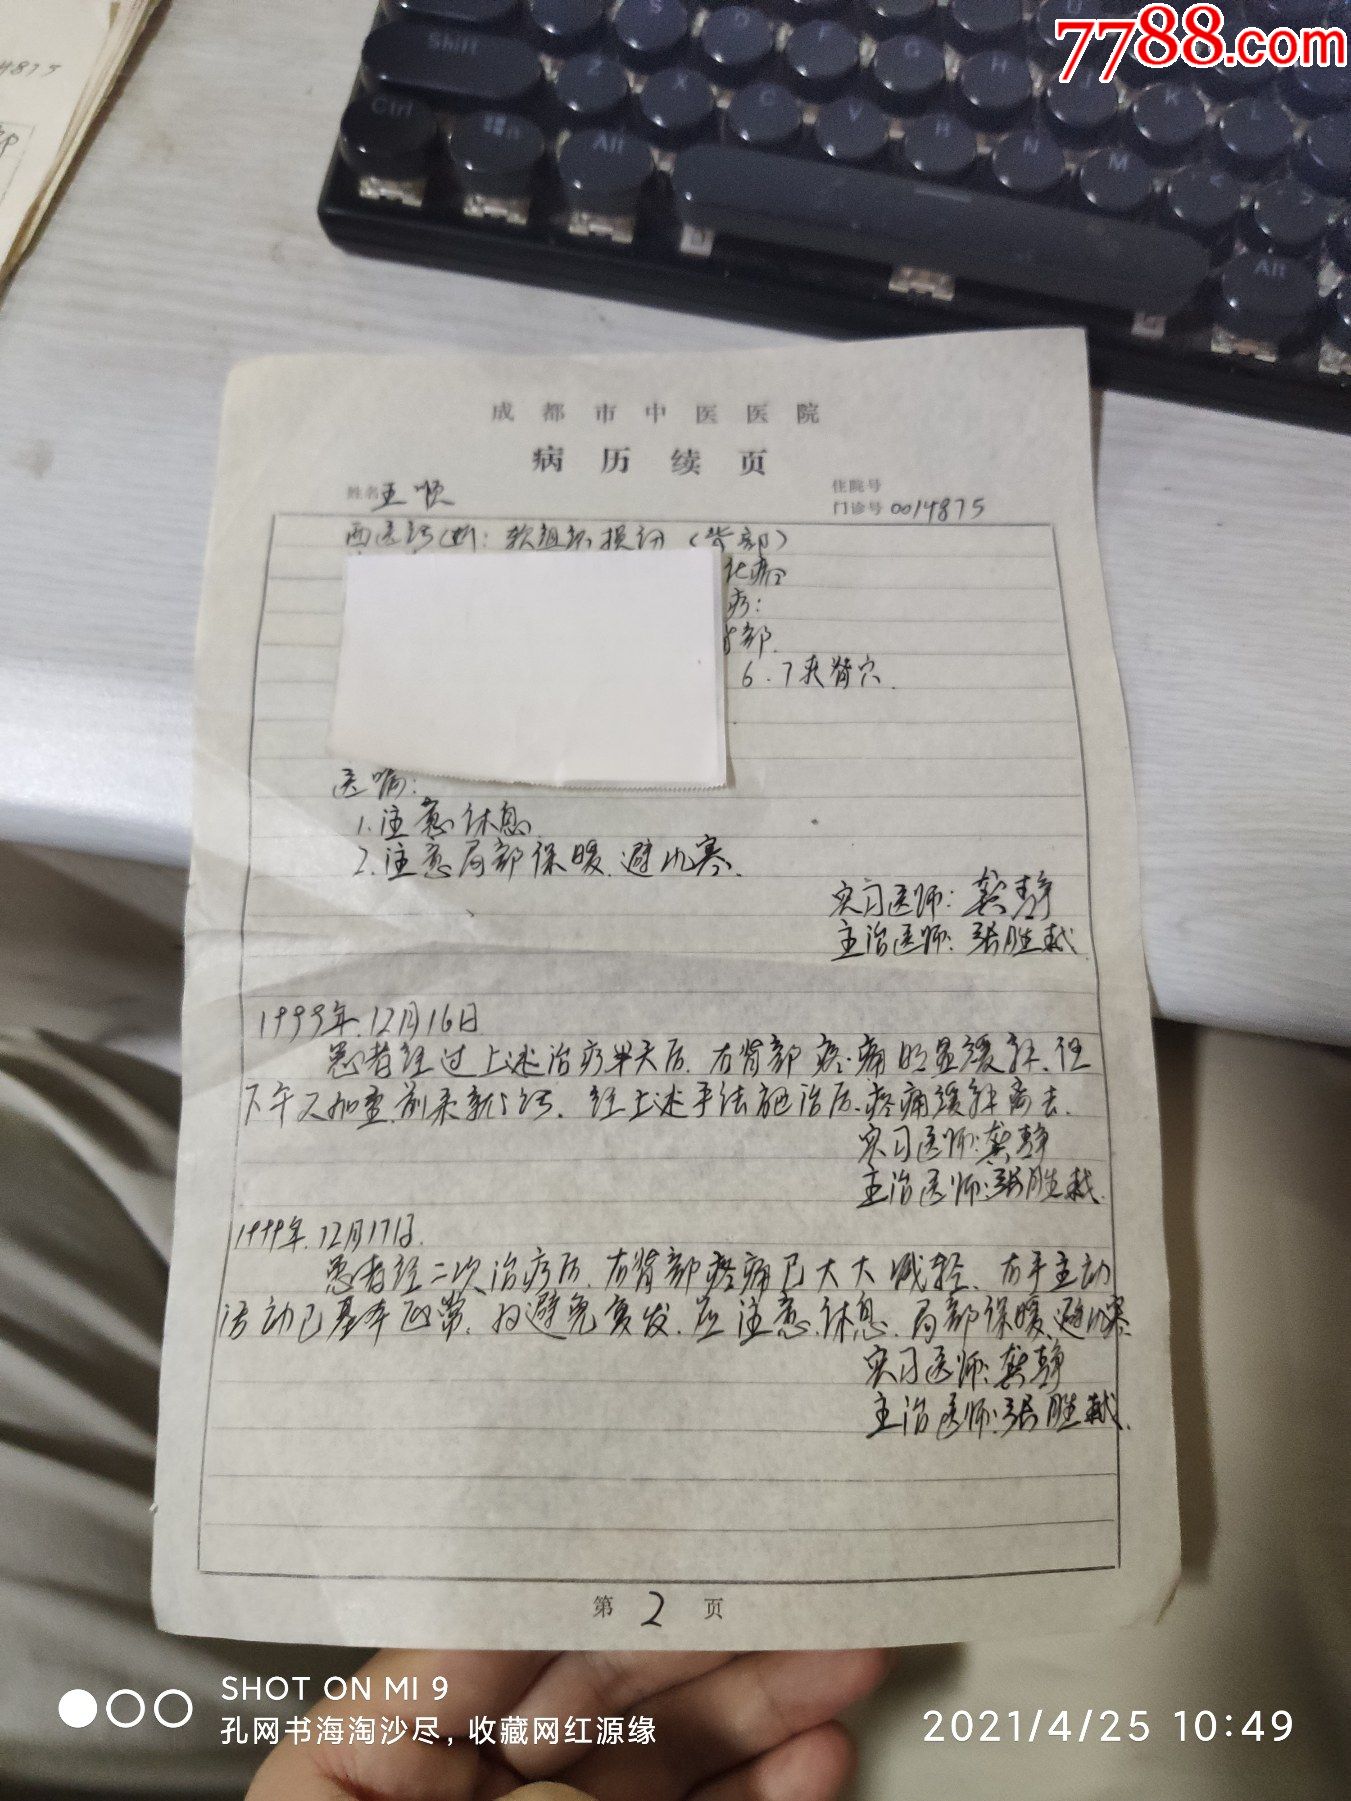 7788.com
4875
Shift S D F G H J
Z X C V H J K L
Ctrl Alt N M < >
Alt
成都市中医医院
病历续页
姓名 王顺 住院号
门诊号 0014875
西医诊断: 软组织损伤(背部)
化瘀
疗:
背部.
6.7夹脊穴.
医嘱:
1.注意休息
2.注意局部保暖.避风寒.
实习医师: 龚静
主治医师: 张胜
1999年.12月16日
患者经过上述治疗半天后.右背部疼痛明显缓解.但
下午又如查前来就诊. 经上述手法施治后.疼痛缓解离去.
实习医师:龚静
主治医师:张胜
1999年.12月17日.
患者经二次治疗后.右背部疼痛已大大减轻.右手主动
活动已基本正常.为避免复发.应注意.休息.局部保暖.避风寒.
实习医师:龚静
主治医师:张胜
第 2 页
SHOT ON MI 9
孔网书海淘沙尽，收藏网红源缘
2021/4/25 10:49